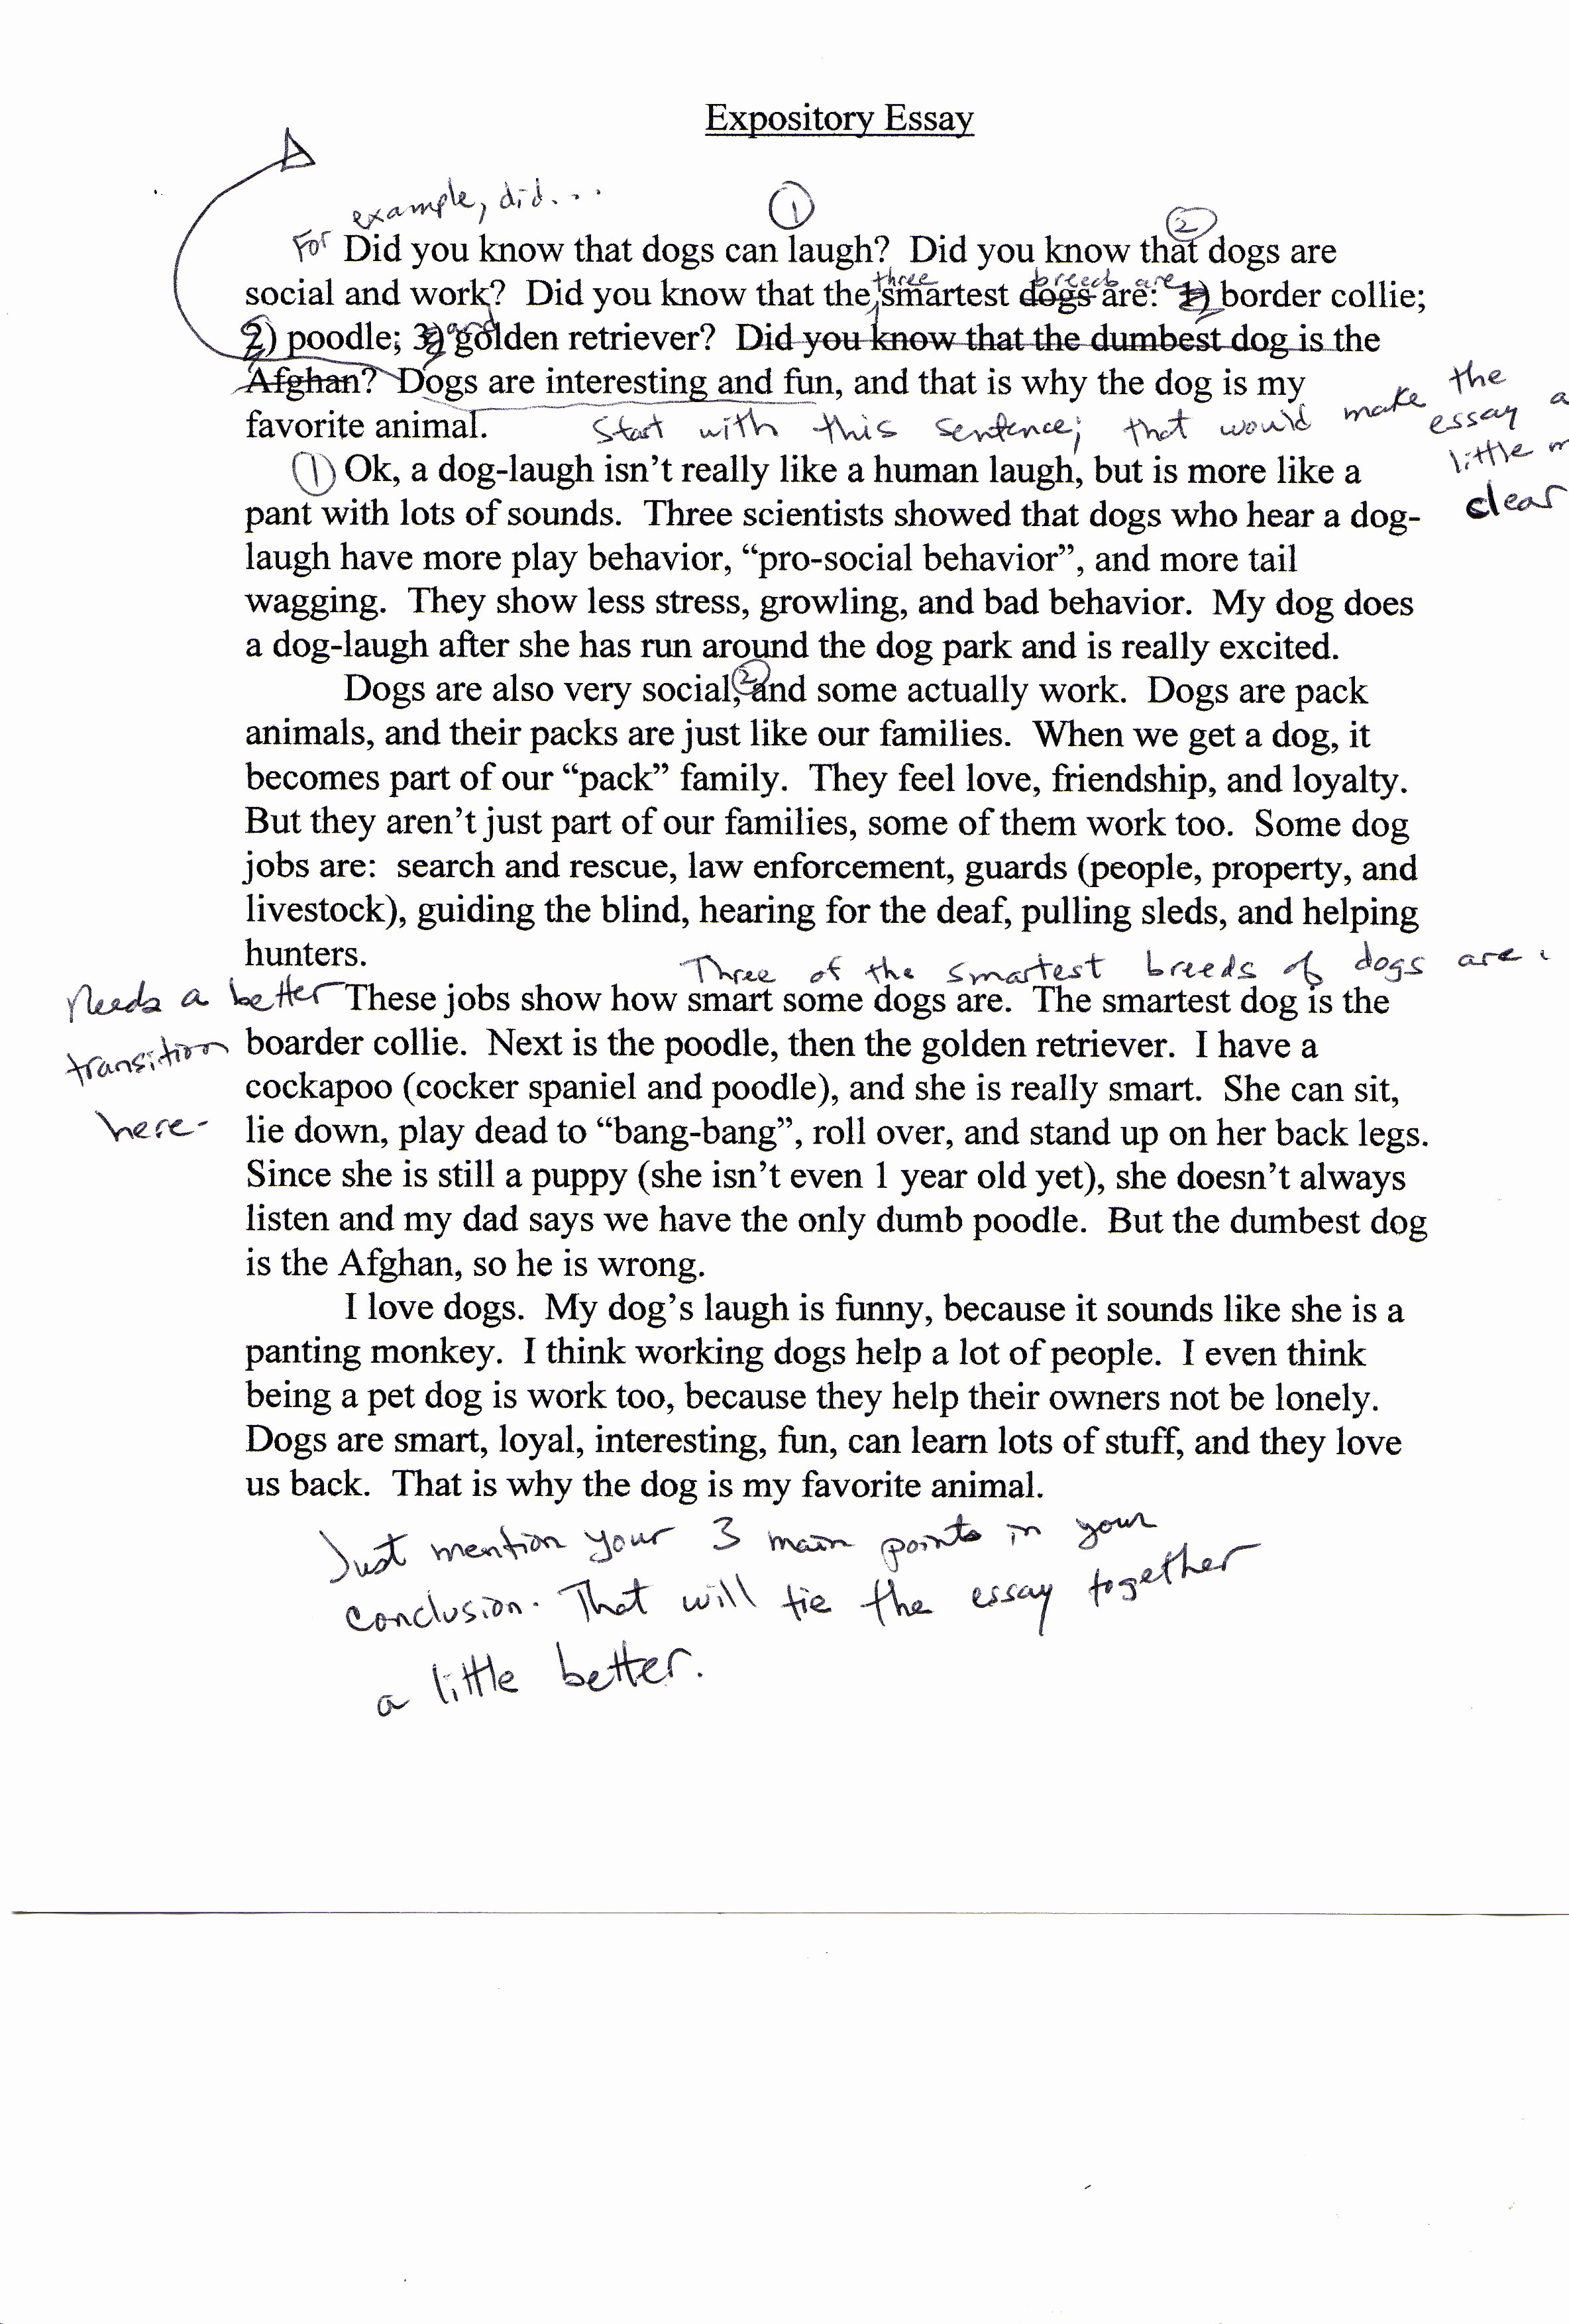 Expository Essay
example, did...
1
2
For Did you know that dogs can laugh?  Did you know that dogs are
three
breeds are
social and work?  Did you know that the smartest dogs are: 1) border collie;
and
2) poodle; 3) golden retriever?  Did you know that the dumbest dog is the
Afghan?  Dogs are interesting and fun, and that is why the dog is my
favorite animal.
Start with this sentence; that would make the
essay a
little
clear
1 Ok, a dog-laugh isn't really like a human laugh, but is more like a
pant with lots of sounds.  Three scientists showed that dogs who hear a dog-
laugh have more play behavior, “pro-social behavior”, and more tail
wagging.  They show less stress, growling, and bad behavior.  My dog does
a dog-laugh after she has run around the dog park and is really excited.
2
Dogs are also very social, and some actually work.  Dogs are pack
animals, and their packs are just like our families.  When we get a dog, it
becomes part of our “pack” family.  They feel love, friendship, and loyalty.
But they aren't just part of our families, some of them work too.  Some dog
jobs are:  search and rescue, law enforcement, guards (people, property, and
livestock), guiding the blind, hearing for the deaf, pulling sleds, and helping
hunters.
Three of the smartest breeds of dogs are
Needs a better
transition
here-
These jobs show how smart some dogs are.  The smartest dog is the
boarder collie.  Next is the poodle, then the golden retriever.  I have a
cockapoo (cocker spaniel and poodle), and she is really smart.  She can sit,
lie down, play dead to “bang-bang”, roll over, and stand up on her back legs.
Since she is still a puppy (she isn't even 1 year old yet), she doesn't always
listen and my dad says we have the only dumb poodle.  But the dumbest dog
is the Afghan, so he is wrong.
I love dogs.  My dog's laugh is funny, because it sounds like she is a
panting monkey.  I think working dogs help a lot of people.  I even think
being a pet dog is work too, because they help their owners not be lonely.
Dogs are smart, loyal, interesting, fun, can learn lots of stuff, and they love
us back.  That is why the dog is my favorite animal.
Just mention your 3 main points in your
conclusion. That will tie the essay together
a little better.